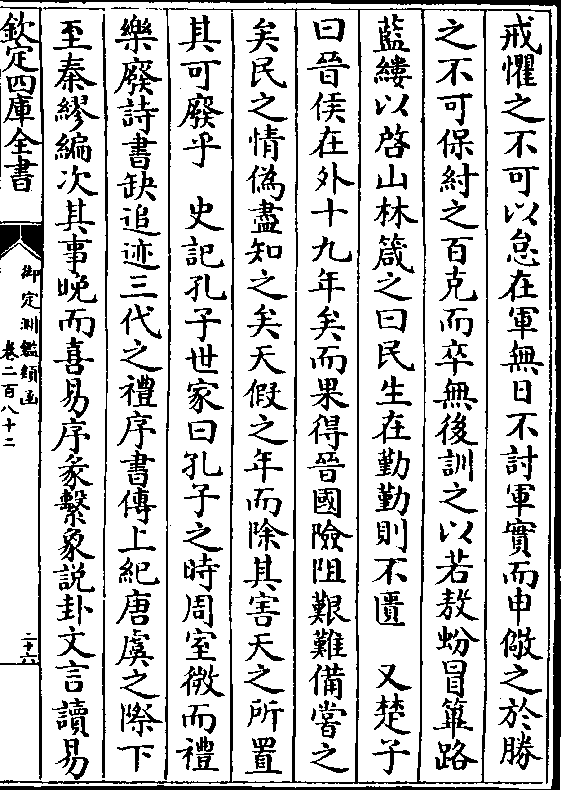 戒懼之不可以怠在軍無日不討軍實而申儆之於勝
之不可保紂之百克而卒無後訓之以若敖蚡冒篳路
藍縷以啓山林箴之曰民生在勤勤則不匱　又楚子
曰晉侯在外十九年矣而果得晉國險阻艱難備嘗之
矣民之情偽盡知之矣天假之年而除其害天之所置
其可廢乎　史記孔子世家曰孔子之時周室微而禮
樂廢詩書缺追迹三代之禮序書傳上紀唐虞之際下
至秦繆編次其事晚而喜易序彖繫象說卦文言讀易
欽定四庫全書
御定淵鑑類函
卷二百八十二
二十六